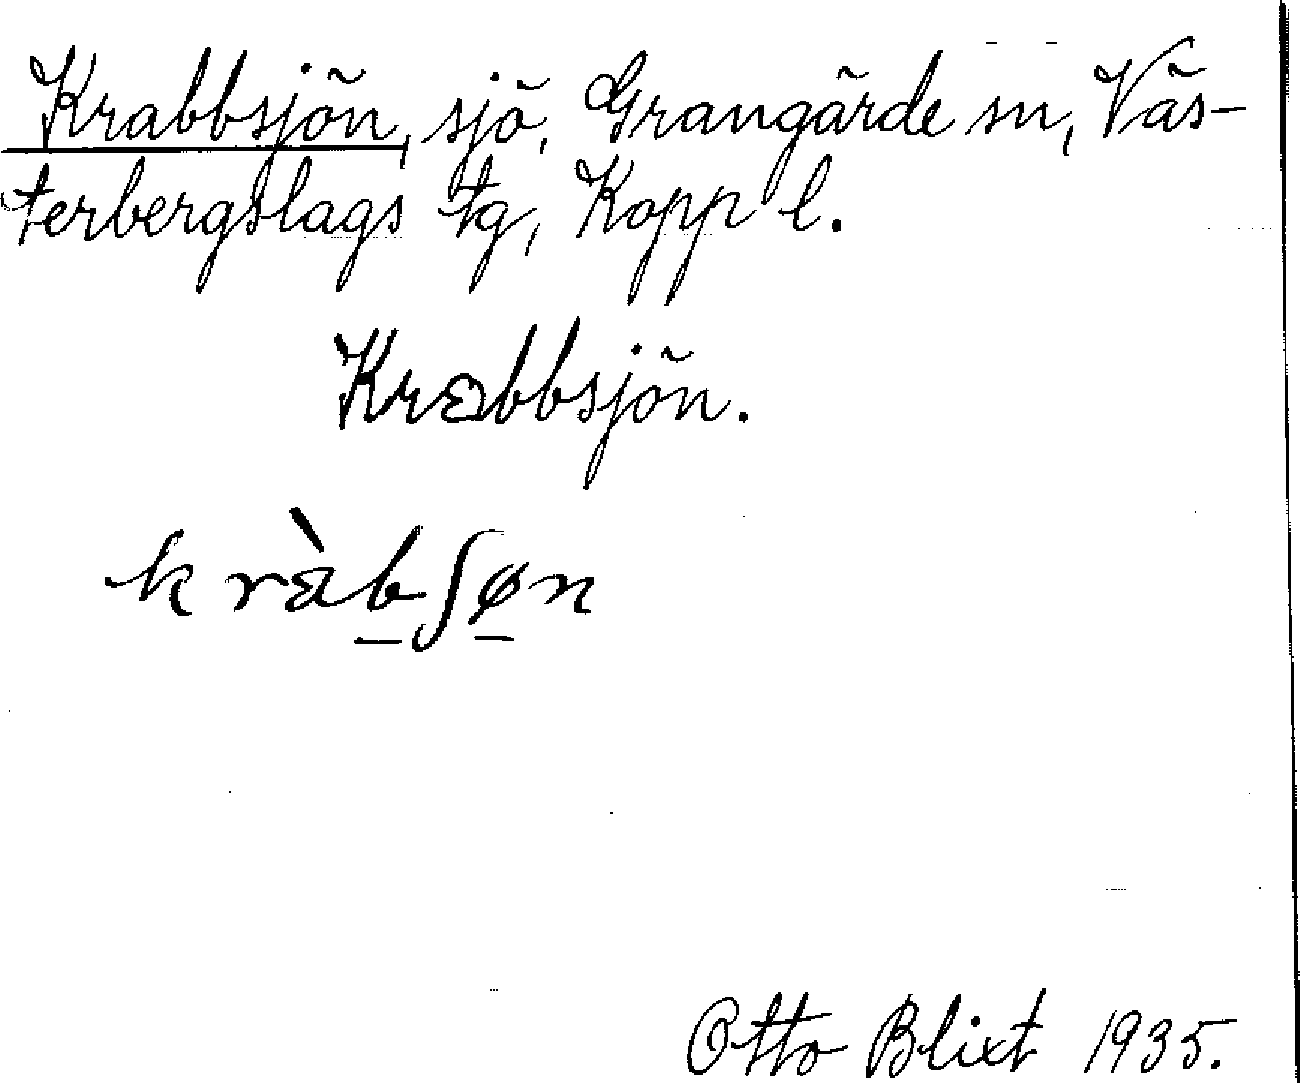 Krabbsjön, sjö, Grangärde sn, Väs-
terbergslags tg, Kopp l.
Kræbbsjön.
Otto Blixt 1935.